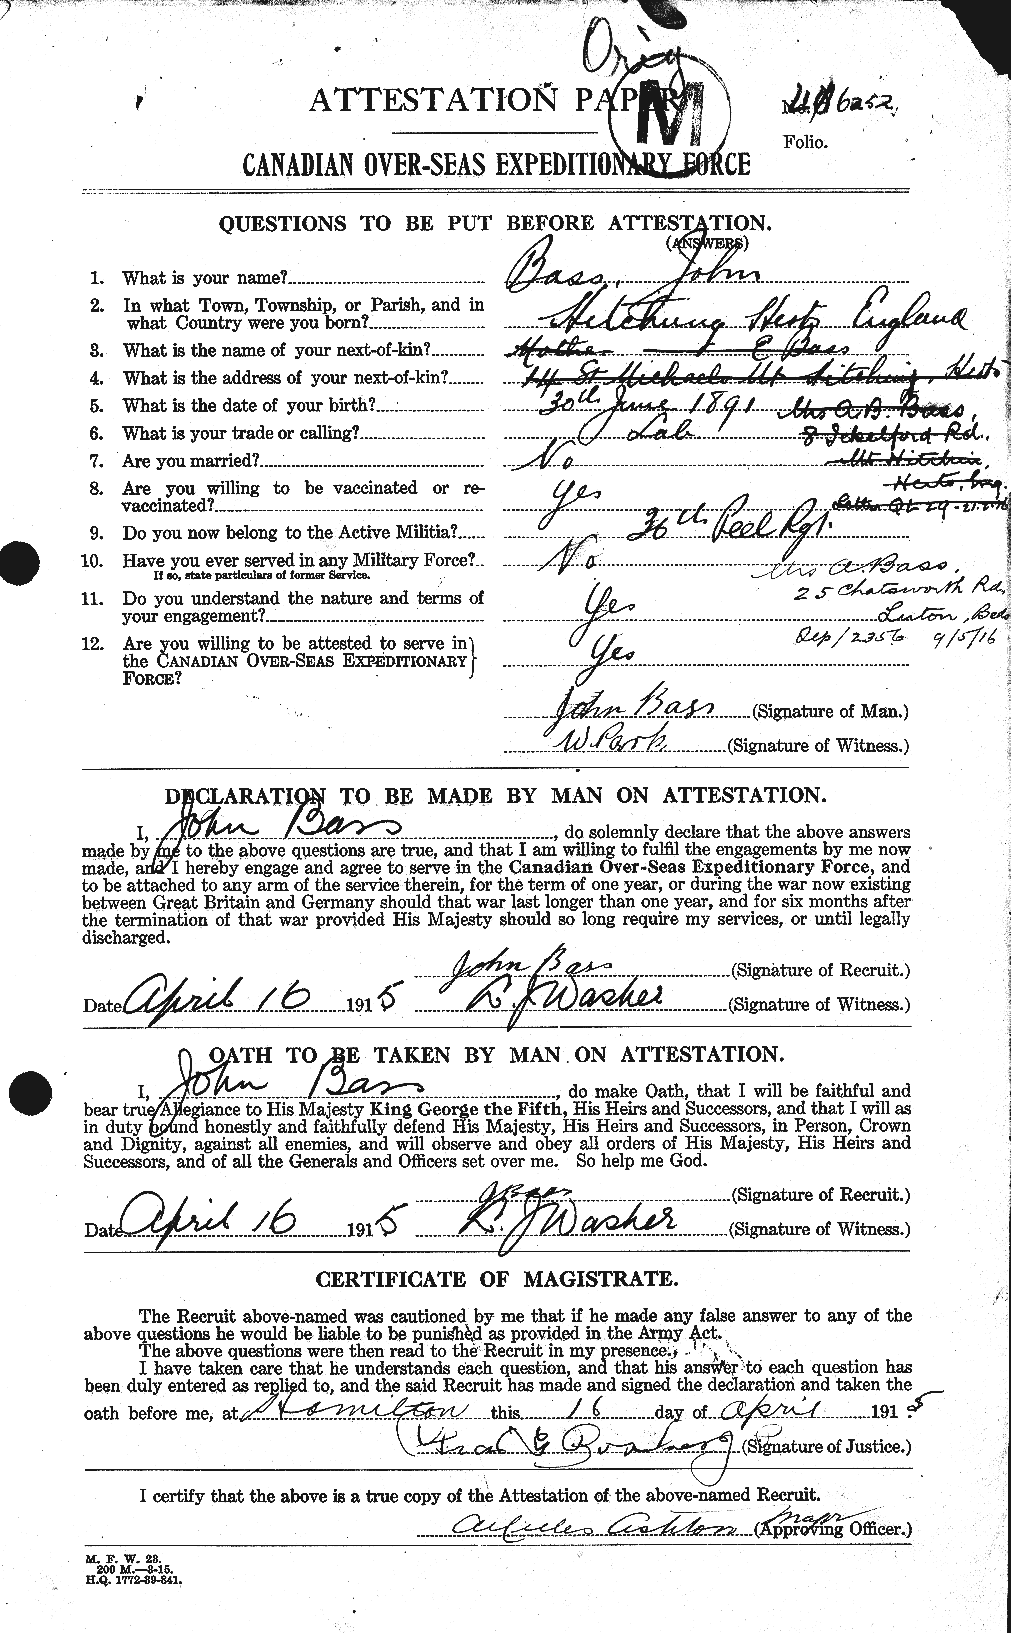 Orig
ATTESTATION PAPER
M
No. 6252.
Folio.
CANADIAN OVER-SEAS EXPEDITIONARY FORCE
QUESTIONS TO BE PUT BEFORE ATTESTATION.
(ANSWERS)
1. What is your name? Bass, John
2. In what Town, Township, or Parish, and in
what Country were you born? Hitching Herts England
3. What is the name of your next-of-kin? Mother E Bass
4. What is the address of your next-of-kin? 14 St Michaels Mt Hitching, Herts
5. What is the date of your birth? 30th June 1891 Mrs A.B. Bass,
6. What is your trade or calling? Lab 8 Ickelford Rd.
7. Are you married? No Mt Hitchin,
8. Are you willing to be vaccinated or re- Herts, Eng.
vaccinated? Yes
9. Do you now belong to the Active Militia? 36th Peel Rgt.
10. Have you ever served in any Military Force? No Mrs A. Bass,
If so, state particulars of former Service.
25 Chatsworth Rd,
11. Do you understand the nature and terms of
your engagement? Yes Luton, Beds
12. Are you willing to be attested to serve in
the CANADIAN OVER-SEAS EXPEDITIONARY
FORCE? Yes
Dep/2356 9/5/16
John Bass (Signature of Man.)
W Park (Signature of Witness.)
DECLARATION TO BE MADE BY MAN ON ATTESTATION.
I, John Bass, do solemnly declare that the above answers
made by me to the above questions are true, and that I am willing to fulfil the engagements by me now
made, and I hereby engage and agree to serve in the Canadian Over-Seas Expeditionary Force, and
to be attached to any arm of the service therein, for the term of one year, or during the war now existing
between Great Britain and Germany should that war last longer than one year, and for six months after
the termination of that war provided His Majesty should so long require my services, or until legally
discharged.
John Bass (Signature of Recruit.)
Date April 16 1915 L. J Washer (Signature of Witness.)
OATH TO BE TAKEN BY MAN ON ATTESTATION.
I, John Bass, do make Oath, that I will be faithful and
bear true Allegiance to His Majesty King George the Fifth, His Heirs and Successors, and that I will as
in duty bound honestly and faithfully defend His Majesty, His Heirs and Successors, in Person, Crown
and Dignity, against all enemies, and will observe and obey all orders of His Majesty, His Heirs and
Successors, and of all the Generals and Officers set over me. So help me God.
J Bass (Signature of Recruit.)
Date April 16 1915 L. J Washer (Signature of Witness.)
CERTIFICATE OF MAGISTRATE.
The Recruit above-named was cautioned by me that if he made any false answer to any of the
above questions he would be liable to be punished as provided in the Army Act.
The above questions were then read to the Recruit in my presence.
I have taken care that he understands each question, and that his answer to each question has
been duly entered as replied to, and the said Recruit has made and signed the declaration and taken the
oath before me, at Hamilton this 16 day of April 1915
(Signature of Justice.)
I certify that the above is a true copy of the Attestation of the above-named Recruit.
Ashton Major (Approving Officer.)
M. F. W. 23.
200 M.—3-15.
H.Q. 1772-39-841.